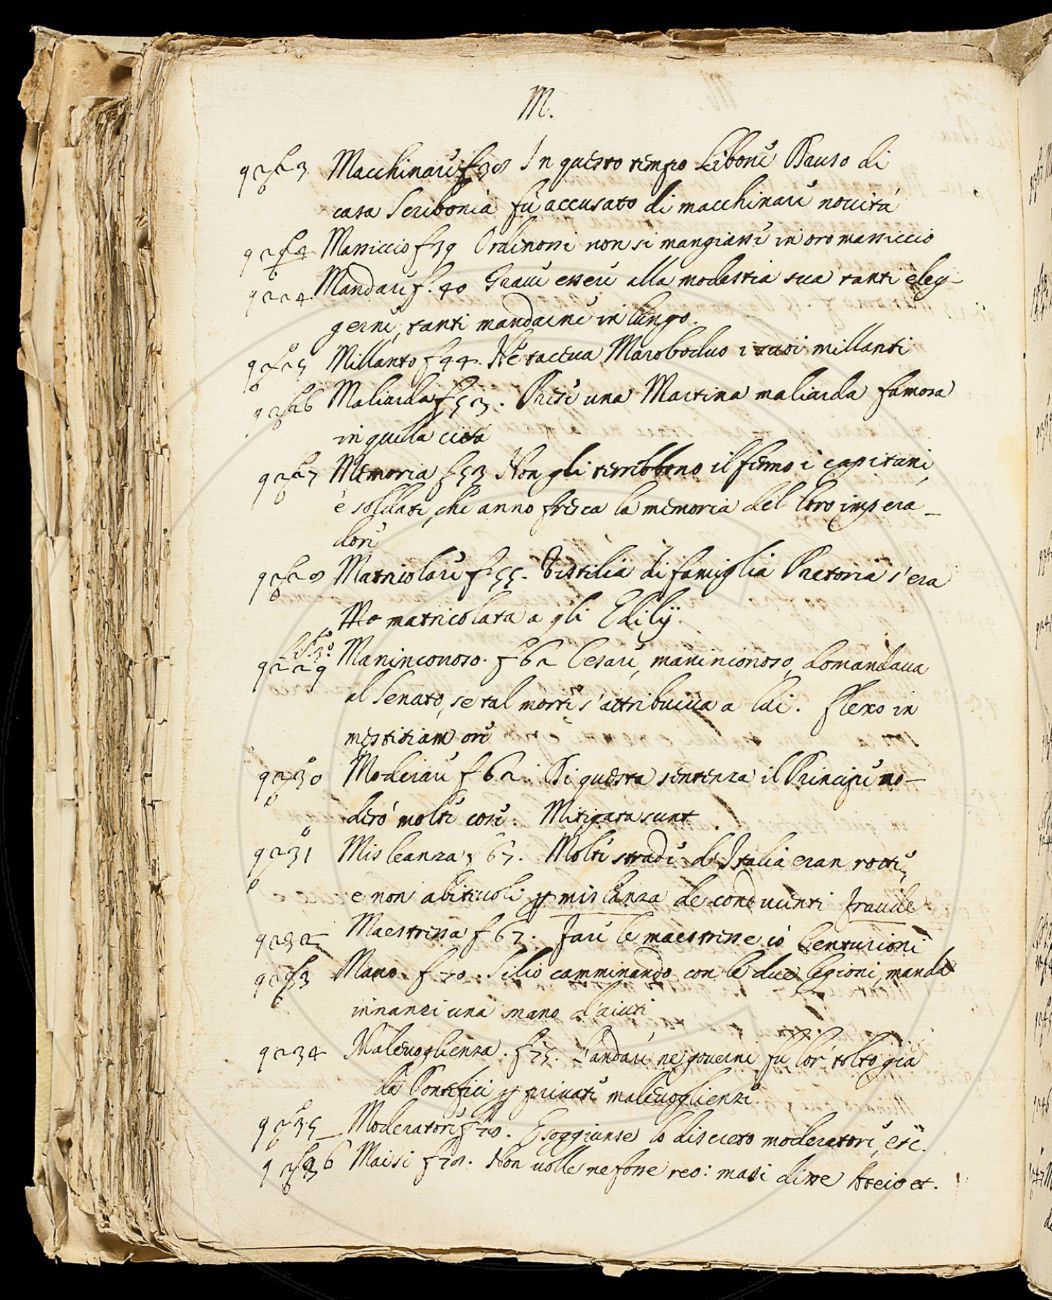 M.
Macchinare f. 38 In questo tempo Libone Druso di
casa Scribonia fù accusato di macchinare novità
Massiccio f. 39 Ordinossi non si mangiasse in oro massiccio
Mandare f. 40 Grave essere alla modestia sua tanti eleg-
gerne, tanti mandarne in lungo.
Millanto f. 44. Nè taceva Maroboduo i suoi millanti
Maliarda f. 53. una Martina maliarda famosa
in quella città
Memoria f. 53 Non gli terrebbeno il fermo i capitani,
è soldati, che anno fresca la memoria del loro impera-
dore
Matricolare f. 55. Vistilia di famiglia Pretoria s'era
matricolata a gli Edilij.
Maninconoso. f. 62 Cesare, maninconoso, domandava
al Senato, se tal morte s'attribuiva a lui. Flexo in
mestitiam ore
Moderare f. 62. Di questa sentenza il Principe mo-
derò molte cose. Mitigata sunt
9231 Misleanza f. 67. Molte strade d'Italia eran rotte,
e non abitevoli p misleanza de conducenti fraude
9232 Maestrissa f. 67. Fare le maestrisse è Centurioni
Mano. f. 70. Silio camminando con le due legioni, manda
innanzi una mano d'aiuti
9234 Malevoglienza. f. 75. L'andare ne governi fù lor tolto già
da Pontefici p private malevoglienze.
Moderatore f. 78. E soggiunse lo discreto moderatore, etc.
Maisi f. 78. Non volle ne fosse reo: maisi disse Ateio et.